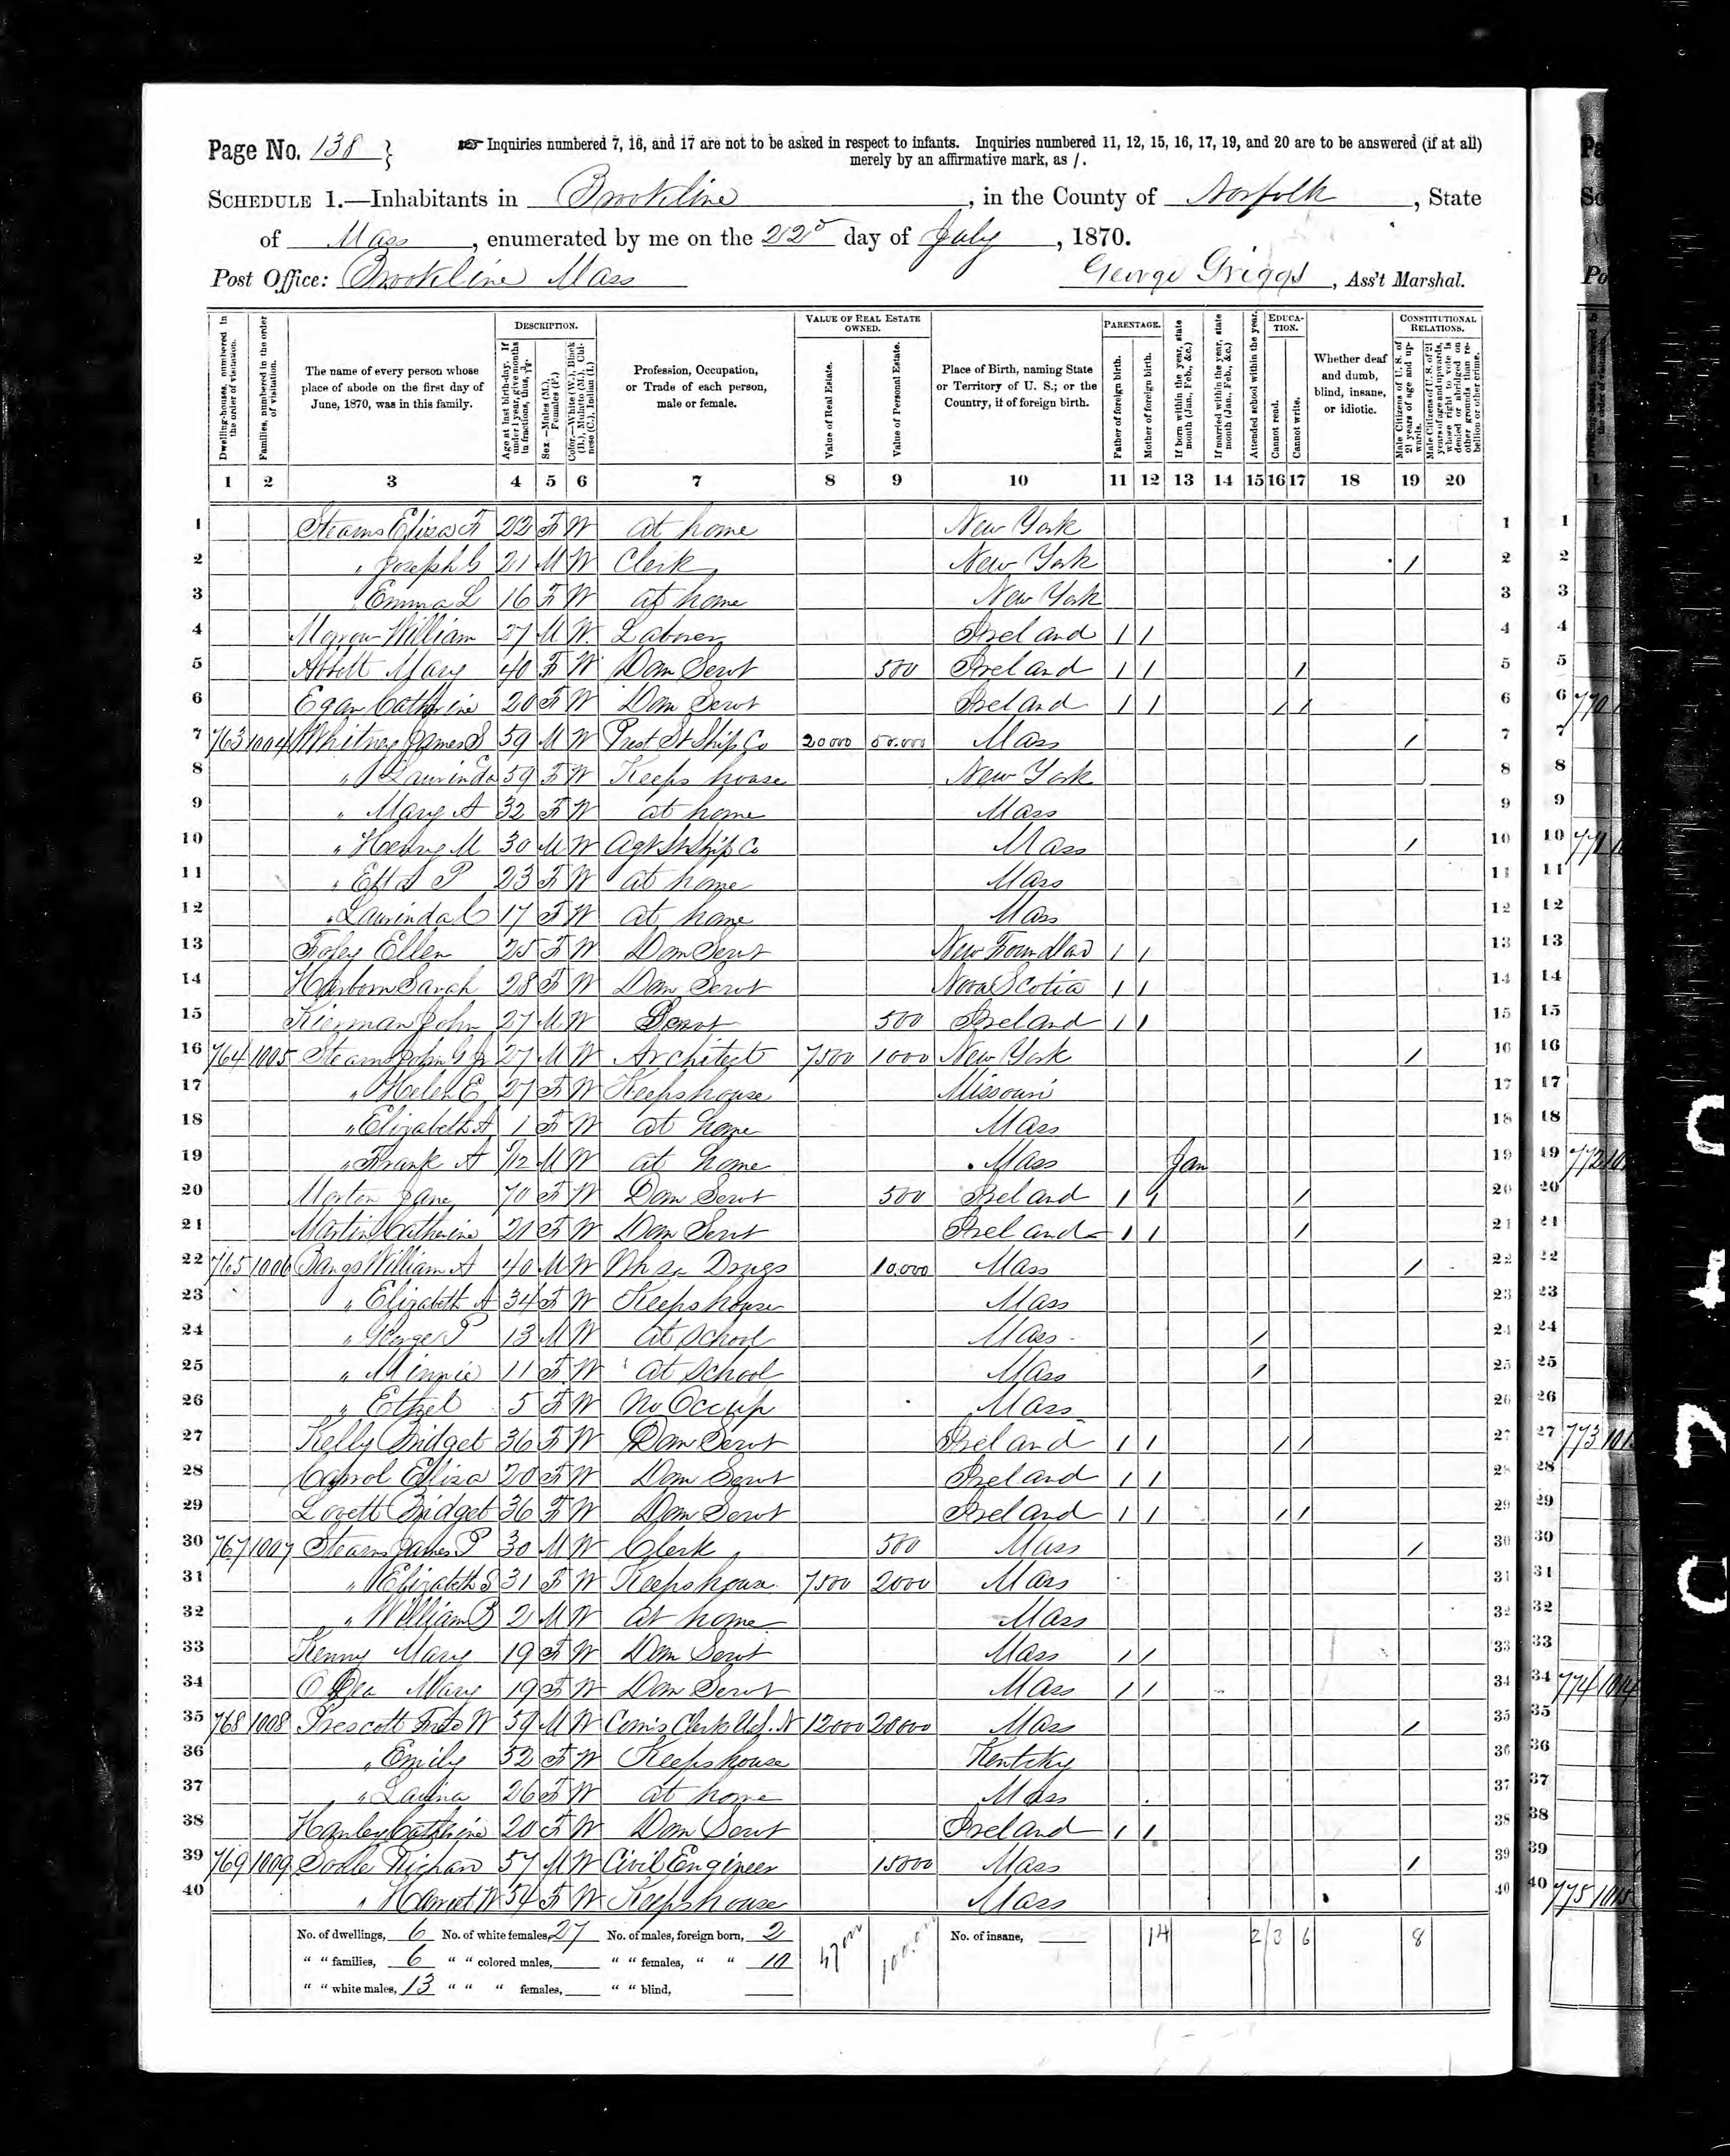 Page No. 138 }
☞ Inquiries numbered 7, 16, and 17 are not to be asked in respect to infants. Inquiries numbered 11, 12, 15, 16, 17, 19, and 20 are to be answered (if at all)
merely by an affirmative mark, as /.
SCHEDULE 1.—Inhabitants in Brookline, in the County of Norfolk, State
of Mass, enumerated by me on the 22d day of July, 1870.
Post Office: Brookline Mass George Griggs, Ass't Marshal.
Dwelling-houses, numbered in the order of visitation.
Families, numbered in the order of visitation.
The name of every person whose place of abode on the first day of June, 1870, was in this family.
DESCRIPTION.
Age at last birth-day. If under 1 year, give months in fractions, thus, 3/12.
Sex.—Males (M.), Females (F.)
Color.—White (W.), Black (B.), Mulatto (M.), Chinese (C.), Indian (I.)
Profession, Occupation, or Trade of each person, male or female.
VALUE OF REAL ESTATE OWNED.
Value of Real Estate.
Value of Personal Estate.
Place of Birth, naming State or Territory of U. S.; or the Country, if of foreign birth.
PARENTAGE.
Father of foreign birth.
Mother of foreign birth.
If born within the year, state month (Jan., Feb., &c.)
If married within the year, state month (Jan., Feb., &c.)
Attended school within the year.
EDUCATION.
Cannot read.
Cannot write.
Whether deaf and dumb, blind, insane, or idiotic.
CONSTITUTIONAL RELATIONS.
Male Citizens of U. S. of 21 years of age and upwards.
Male Citizens of U. S. of 21 years of age and upwards, whose right to vote is denied or abridged on other grounds than rebellion or other crime.
1 2 3 4 5 6 7 8 9 10 11 12 13 14 15 16 17 18 19 20
1 Stearns Eliza F 22 F W at home New York 1
2 " Joseph G 21 M W Clerk New York / 2
3 " Emma L 16 F W at home New York 3
4 William 27 M W Laborer Ireland / / 4
5 Abbott Mary 40 F W Dom Servt 500 Ireland / / / 5
6 Egan Catherine 20 F W Dom Servt Ireland / / / / 6
7 763 1004 Whitney James S 59 M W Prest St Ship Co 20000 50.000 Mass / 7
8 " Laurinda 59 F W Keeps house New York 8
9 " Mary A 32 F W at home Mass 9
10 " Henry M 30 M W Agt St Ship Co Mass / 10
11 " P 23 F W at home Mass 11
12 " Laurinda C 17 F W at home Mass 12
13 Foley Ellen 25 F W Dom Servt New Foundland / / 13
14 Sarah 28 F W Dom Servt Nova Scotia / / 14
15 Kiernan John 27 M W Servt 500 Ireland / / 15
16 764 1005 Stearns John G Jr 27 M W Architect 7500 1000 New York / 16
17 " Helen E 27 F W Keeps house Missouri 17
18 " Elizabeth A 1 F W at home Mass 18
19 " Frank A /12 M W at home Mass Jan 19
20 Morton Jane 70 F W Dom Servt 500 Ireland / / / 20
21 Martin Catherine 21 F W Dom Servt Ireland / / / 21
22 765 1006 Bangs William A 40 M W Wh Drugs 10.000 Mass / 22
23 " Elizabeth A 34 F W Keeps house Mass 23
24 " George P 13 M W at School Mass / 24
25 " Minnie 11 F W at School Mass / 25
26 " Ethel 5 F W No Occup Mass 26
27 Kelly Bridget 36 F W Dom Servt Ireland / / / / 27
28 Carrol Eliza 20 F W Dom Servt Ireland / / 28
29 Lovett Bridget 36 F W Dom Servt Ireland / / / / 29
30 767 1007 Stearns James P 30 M W Clerk 500 Mass / 30
31 " Elizabeth S 31 F W Keeps house 7500 2000 Mass 31
32 " William B 2 M W at home Mass 32
33 Kenny Mary 19 F W Dom Servt Mass / / 33
34 O Dea Mary 19 F W Dom Servt Mass / / 34
35 768 1008 Prescott W 59 M W Comis Clerk 12000 20000 Mass / 35
36 " Emily 52 F W Keeps house Kentcky 36
37 " Laura 26 F W at home Mass 37
38 Hanley Catherine 20 F W Dom Servt Ireland / / 38
39 769 1009 Soule Richard 57 M W Civil Engineer 15000 Mass / 39
40 " Harriet W 54 F W Keeps house Mass 40
No. of dwellings, 6 No. of white females, 27 No. of males, foreign born, 2 47000 100.0 No. of insane, 14 2 3 6 8
" " families, 6 " " colored males, " " females, " " 10
" " white males, 13 " " " females, " " blind,
1
2
3
4
5
6 770
7
8
9
10 771
11
12
13
14
15
16
17
18
19 772 10
20
21
22
23
24
25
26
27 773 101
28
29
30
31
32
33
34 774 1014
35
36
37
38
39
40 775 1015